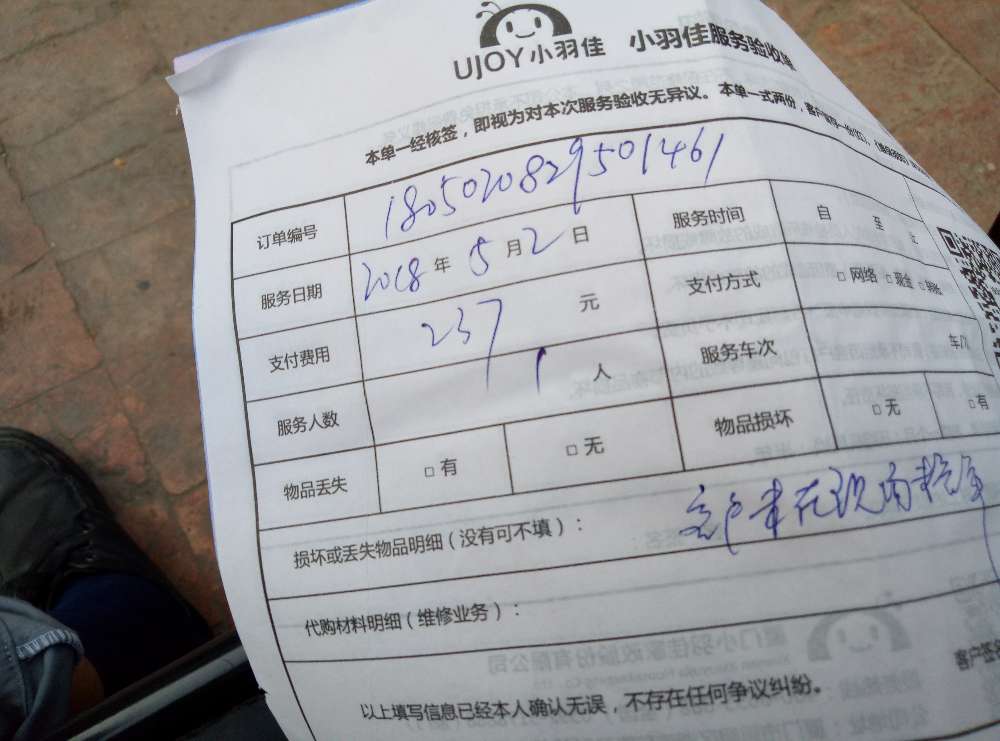 UJOY小羽佳 小羽佳服务验收单
本单一经核签，即视为对本次服务验收无异议。本单一式两份，客户
订单编号 1805020829501461
服务日期 2018年5月2日 服务时间 自 至
支付费用 237元 支付方式 □网络 □现金 □转账
服务人数 1人 服务车次 车/次
物品丢失 □有 □无 物品损坏 □无 □有
损坏或丢失物品明细（没有可不填）：
代购材料明细（维修业务）：
客户签名
以上填写信息已经本人确认无误，不存在任何争议纠纷。